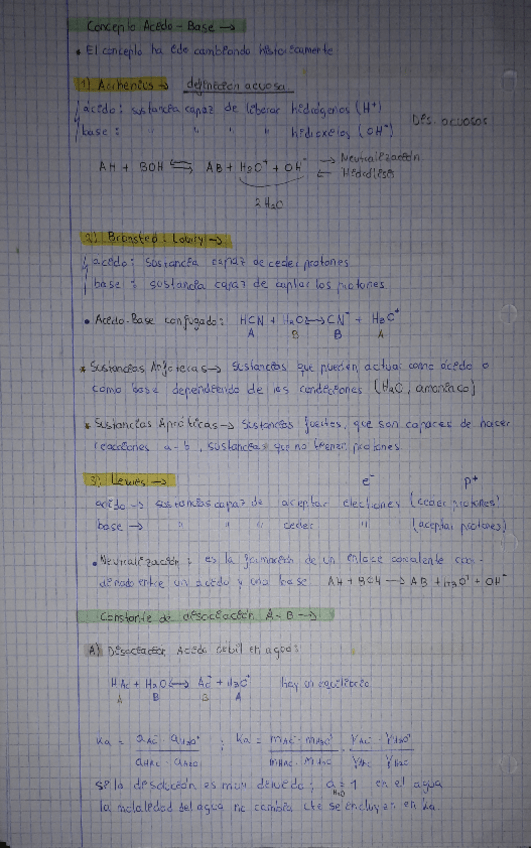 Concepto Acido-Base →
• El concepto ha ido cambiando históricamente
1) Arrhenius → definición acuosa.
ácido: sustancia capaz de liberar hidrógenos (H⁺)
base: " " " " hidroxilos (OH⁻) Dis. acuosas
AH + BOH ⇆ AB + H₃O⁺ + OH⁻ → Neutralización
← Hidrólisis
2 H₂O
2) Bronsted-Lowry →
ácido: sustancia capaz de ceder protones
base: sustancia capaz de captar los protones
• Acido-Base conjugado: HCN + H₂O ⟷ CN⁻ + H₃O⁺
A B B A
* Sustancias Anfóteras → sustancias que pueden actuar como ácido o
como base dependiendo de las condiciones (H₂O, amoniaco)
* Sustancias Apróticas → sustancias fuertes, que son capaces de hacer
reacciones a-b, sustancias que no tienen protones.
3) Lewis → e⁻ p⁺
ácido → sustancias capaz de aceptar electrones (ceder protones)
base → " " " ceder " (aceptar protones)
• Neutralización: es la formación de un enlace covalente coor-
dinado entre un ácido y una base. AH + BOH → AB + H₃O⁺ + OH⁻
Constante de disociación A-B →
A) Disociación Acido débil en agua:
HAc + H₂O ⟷ Ac⁻ + H₃O⁺ hay un equilibrio
A B B A
Ka = aAc⁻ · aH₃O⁺ / aHAc · aH₂O ; Ka = mAc⁻ · mH₃O⁺ / mHAc · mH₂O · γAc⁻ · γH₃O⁺ / γHAc · γH₂O
si la disolución es muy diluida; aH₂O = 1 en el agua
la molalidad del agua no cambia, cte se incluyen en Ka.